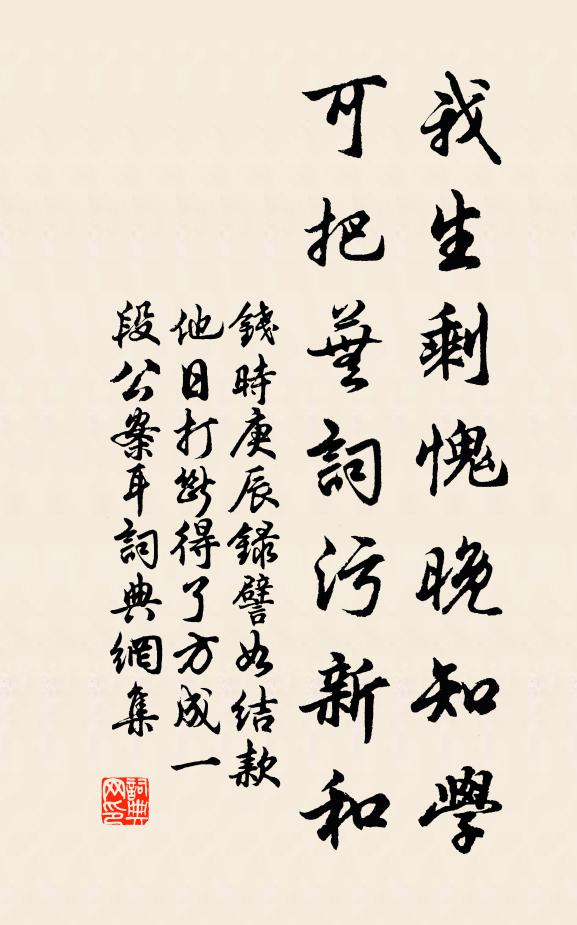 我生剩愧晚知學
可把蕪詞污新和
錢時庚辰錄譬如結款
他日打斷得了方成一
段公案耳詞典網集
詞典网印